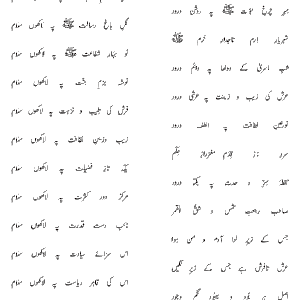 مہرِ چرخِ نبوت ﷺ پہ روشن درود گلِ باغِ رسالت ﷺ پہ لاکھوں سلام
شہریارِ ارم تاجدارِ حرم ﷺ نو بہارِ شفاعت ﷺ پہ لاکھوں سلام
شبِ اسریٰ کے دولھا پہ دائم درود نوشہ بزم جنت پہ لاکھوں سلام
عرش کی زیب و زینت پہ عرشی درود فرش کی طیب و نزہت پہ لاکھوں سلام
نورِ عین لطافت پہ الطف درود زیب و زینِ نظافت پہ لاکھوں سلام
سرو ناز قِدَم مغزِ راز حِکَم یکہ تاز فضیلت پہ لاکھوں سلام
نقطۂ سرِّ وحدت پہ یکتا درود مرکز دور کثرت پہ لاکھوں سلام
صاحب رجعت شمس و شق القمر نائب دست قدرت پہ لاکھوں سلام
جس کے زیر لوا آدم و من سوا اس سزائے سیادت پہ لاکھوں سلام
عرش تا فرش ہے جس کے زیر نگیں اس کی قاہر ریاست پہ لاکھوں سلام
اصل ہر بود و بہبود تخم وجود